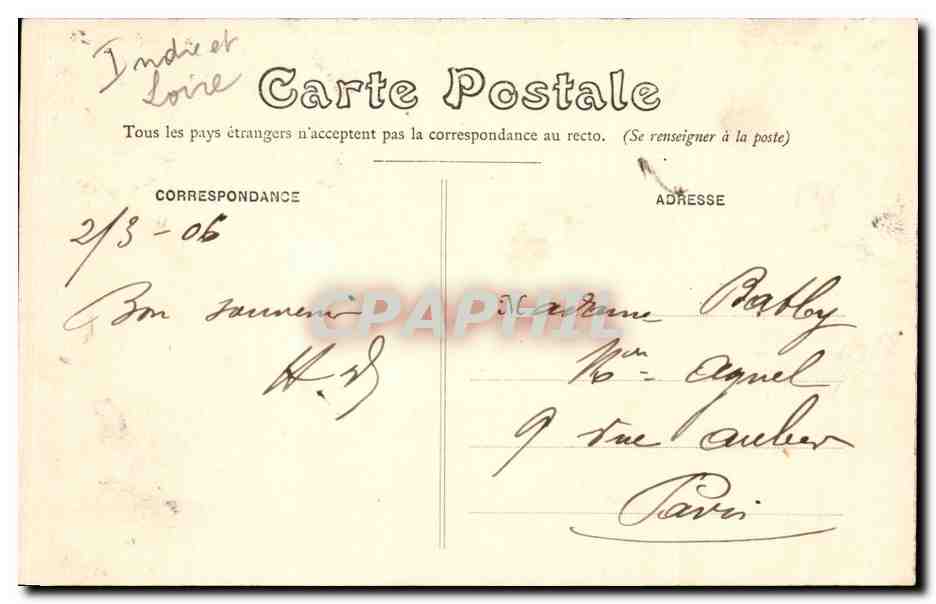 Indre et
Loire
Carte Postale
Tous les pays étrangers n'acceptent pas la correspondance au recto. (Se renseigner à la poste)
CORRESPONDANCE
2/3-06
Bon souvenir
H. D
ADRESSE
Madame Batby
Mon- Agnel
9 rue auber
Paris
CPAPHIL